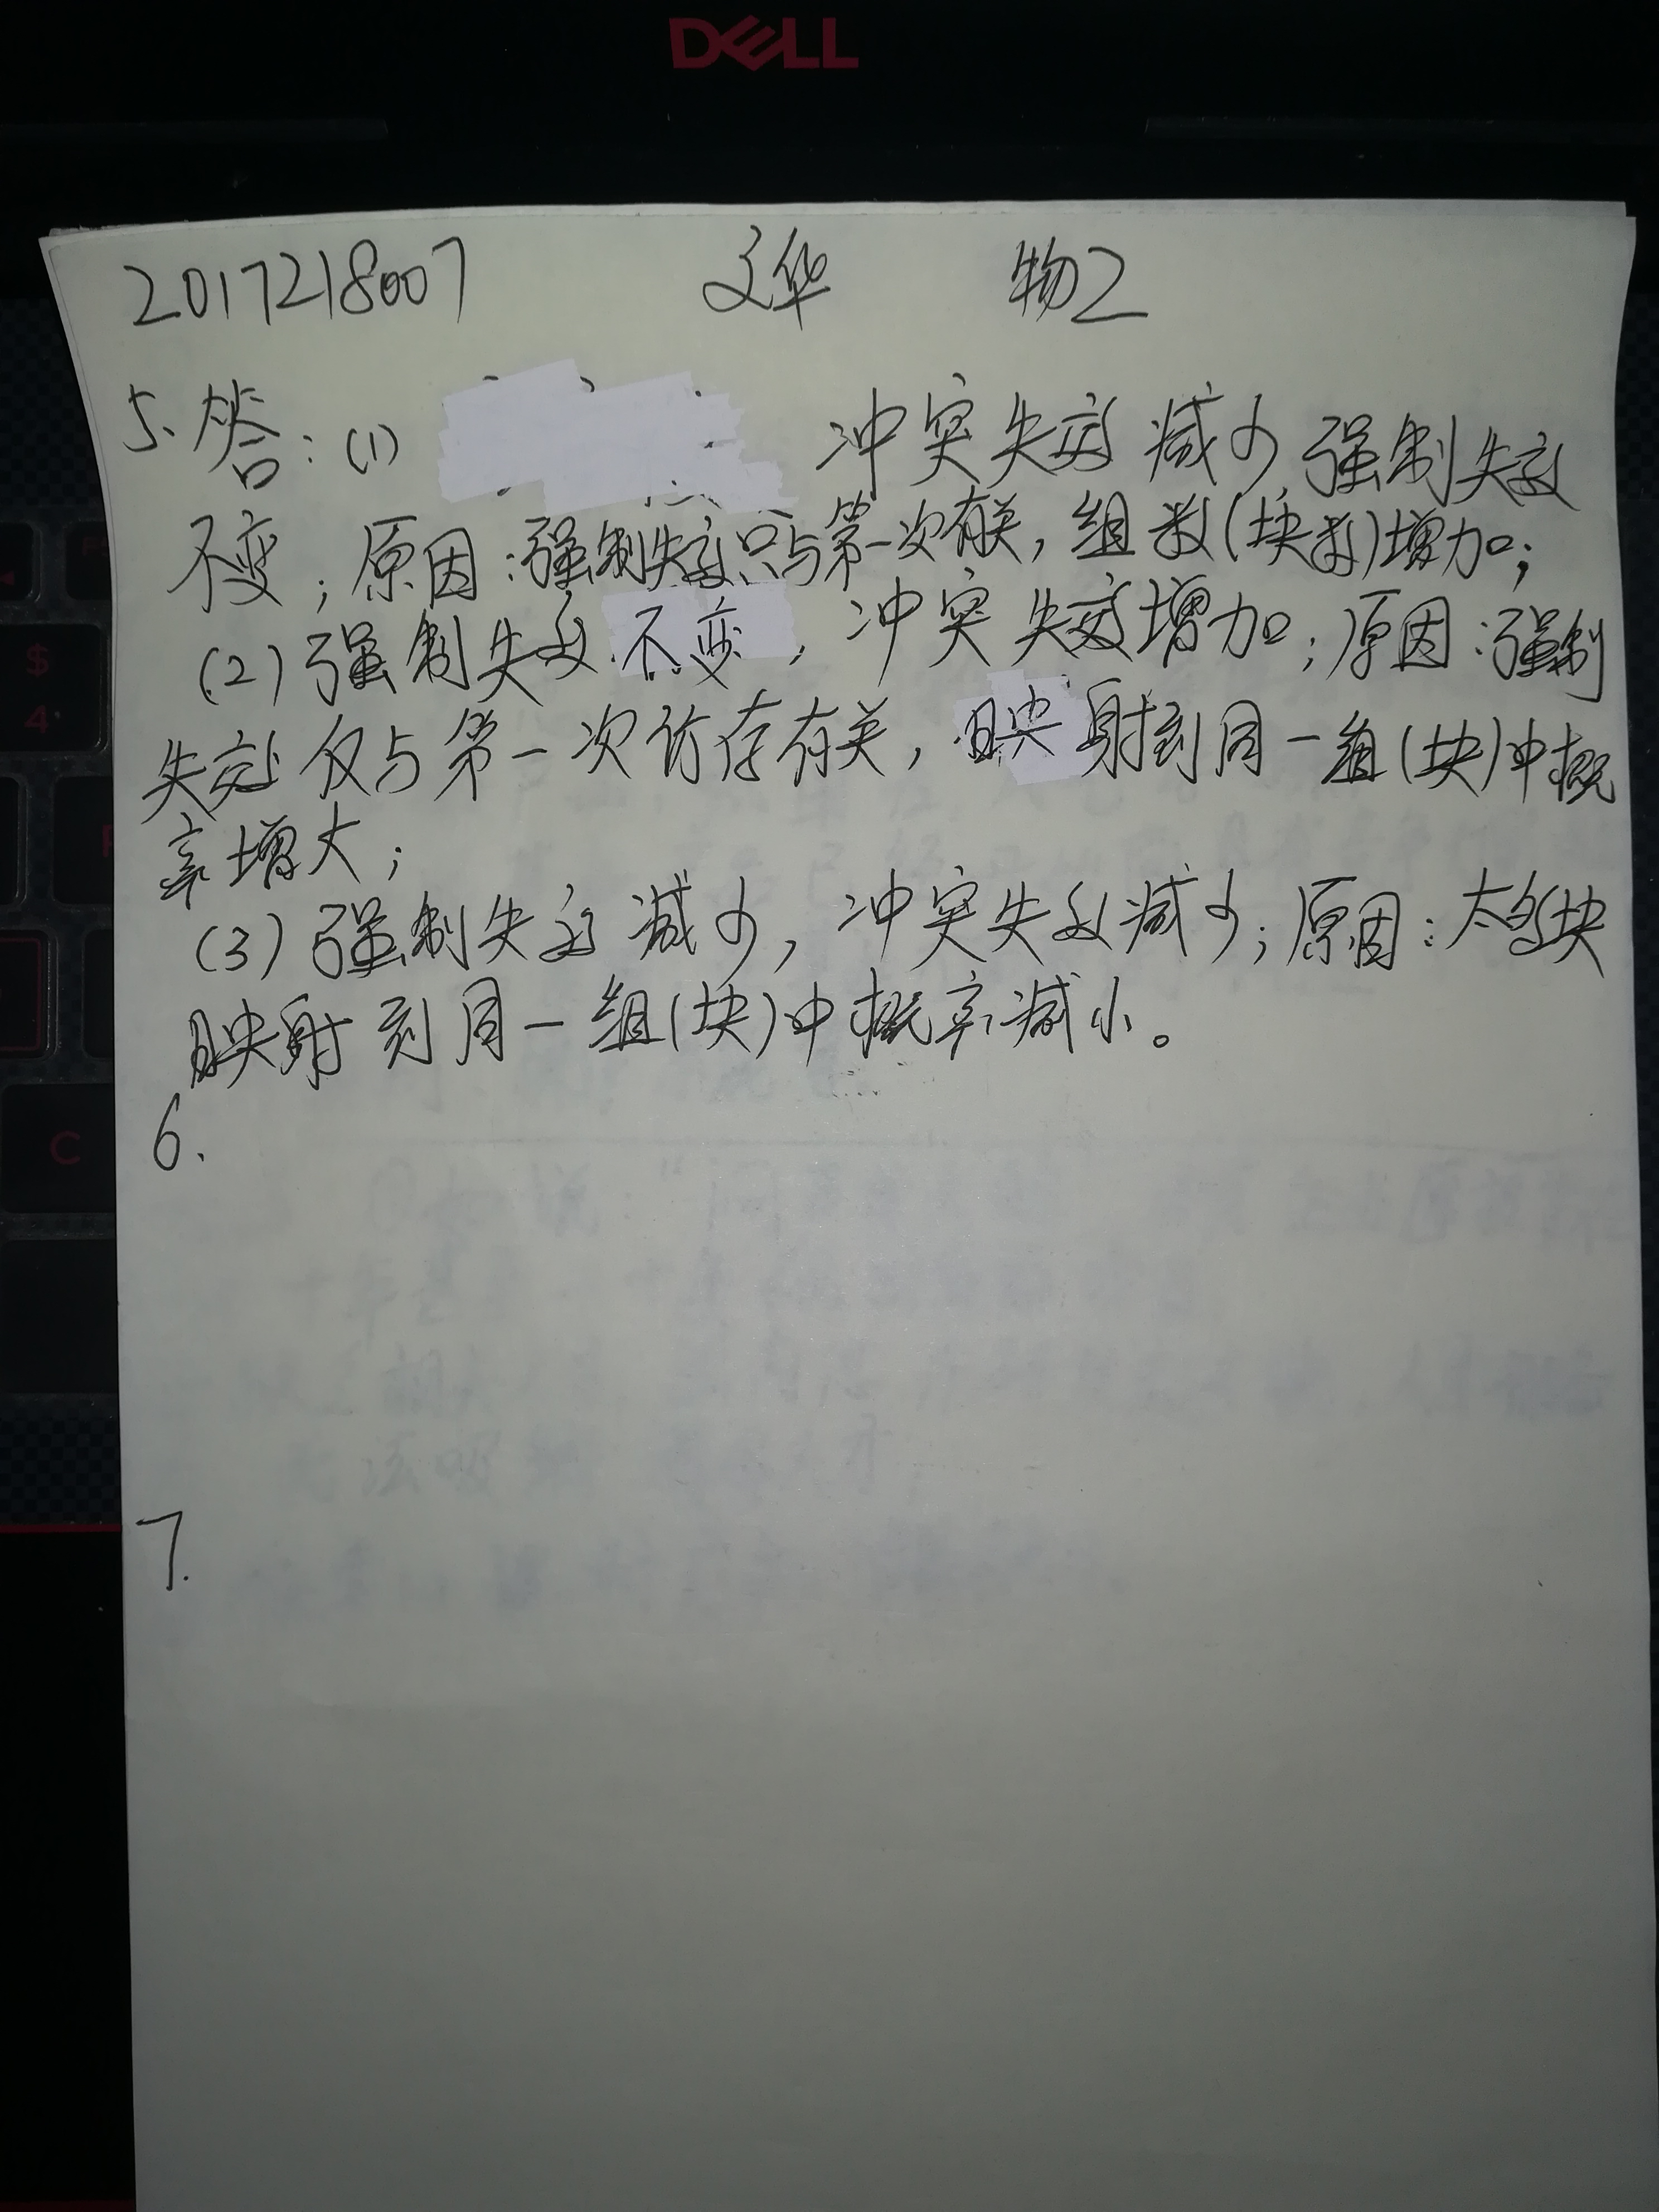 DELL
2017218007 文华 物2
5.答:(1) 冲突失效减少 强制失效
不变;原因:强制失效只与第一次有关,组数(块数)增加;
(2)强制失效不变,冲突失效增加;原因:强制
失效仅与第一次访存有关,映射到同一组(块)中概
率增大;
(3)强制失效减少,冲突失效减少;原因:大的块
映射到同一组(块)中概率减小。
6.
7.
$
4
C